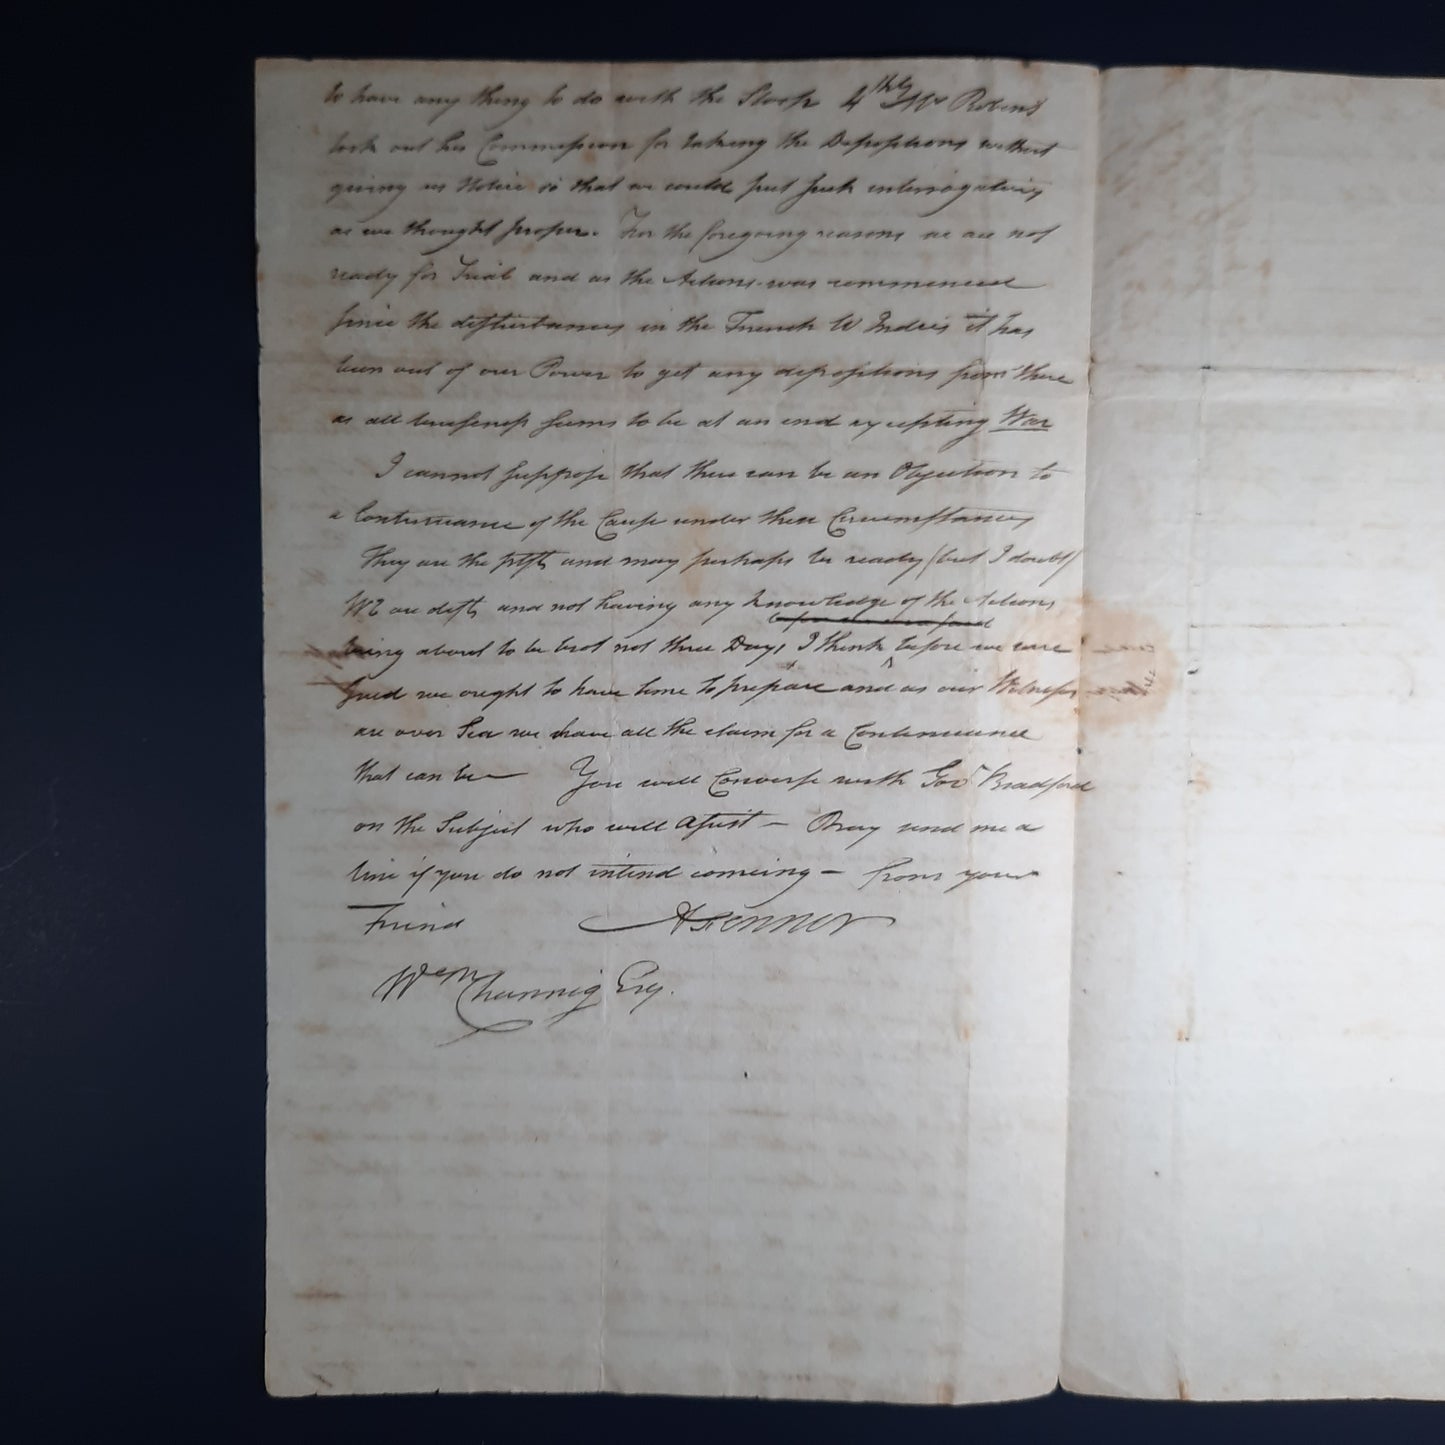 to have any thing to do with the Sloop 4thly Mr Robins
took out his Commission for taking the Depositions without
giving us Notice so that we could put such interrogatories
as we thought proper. For the foregoing reasons we are not
ready for Trial and as the Actions was commenced
since the disturbances in the French W Indies it has
been out of our Power to get any depositions from there
as all business seems to be at an end excepting War
I cannot suppose that there can be an Objection to
a Continuance of the Cause under these Circumstances
They are the pltfs and may perhaps be ready (but I doubt)
We are defts and not having any knowledge of the Actions
being about to be brot not three Days I think before we were
sued we ought to have time to prepare and as our Witnesses
are over Sea we have all the claim for a Continuance
that can be — You will Converse with Govr Bradford
on the Subject who will assist — Pray send me a
line if you do not intend comeing — from your
Friend A Fenner
Wm Channig Esq.